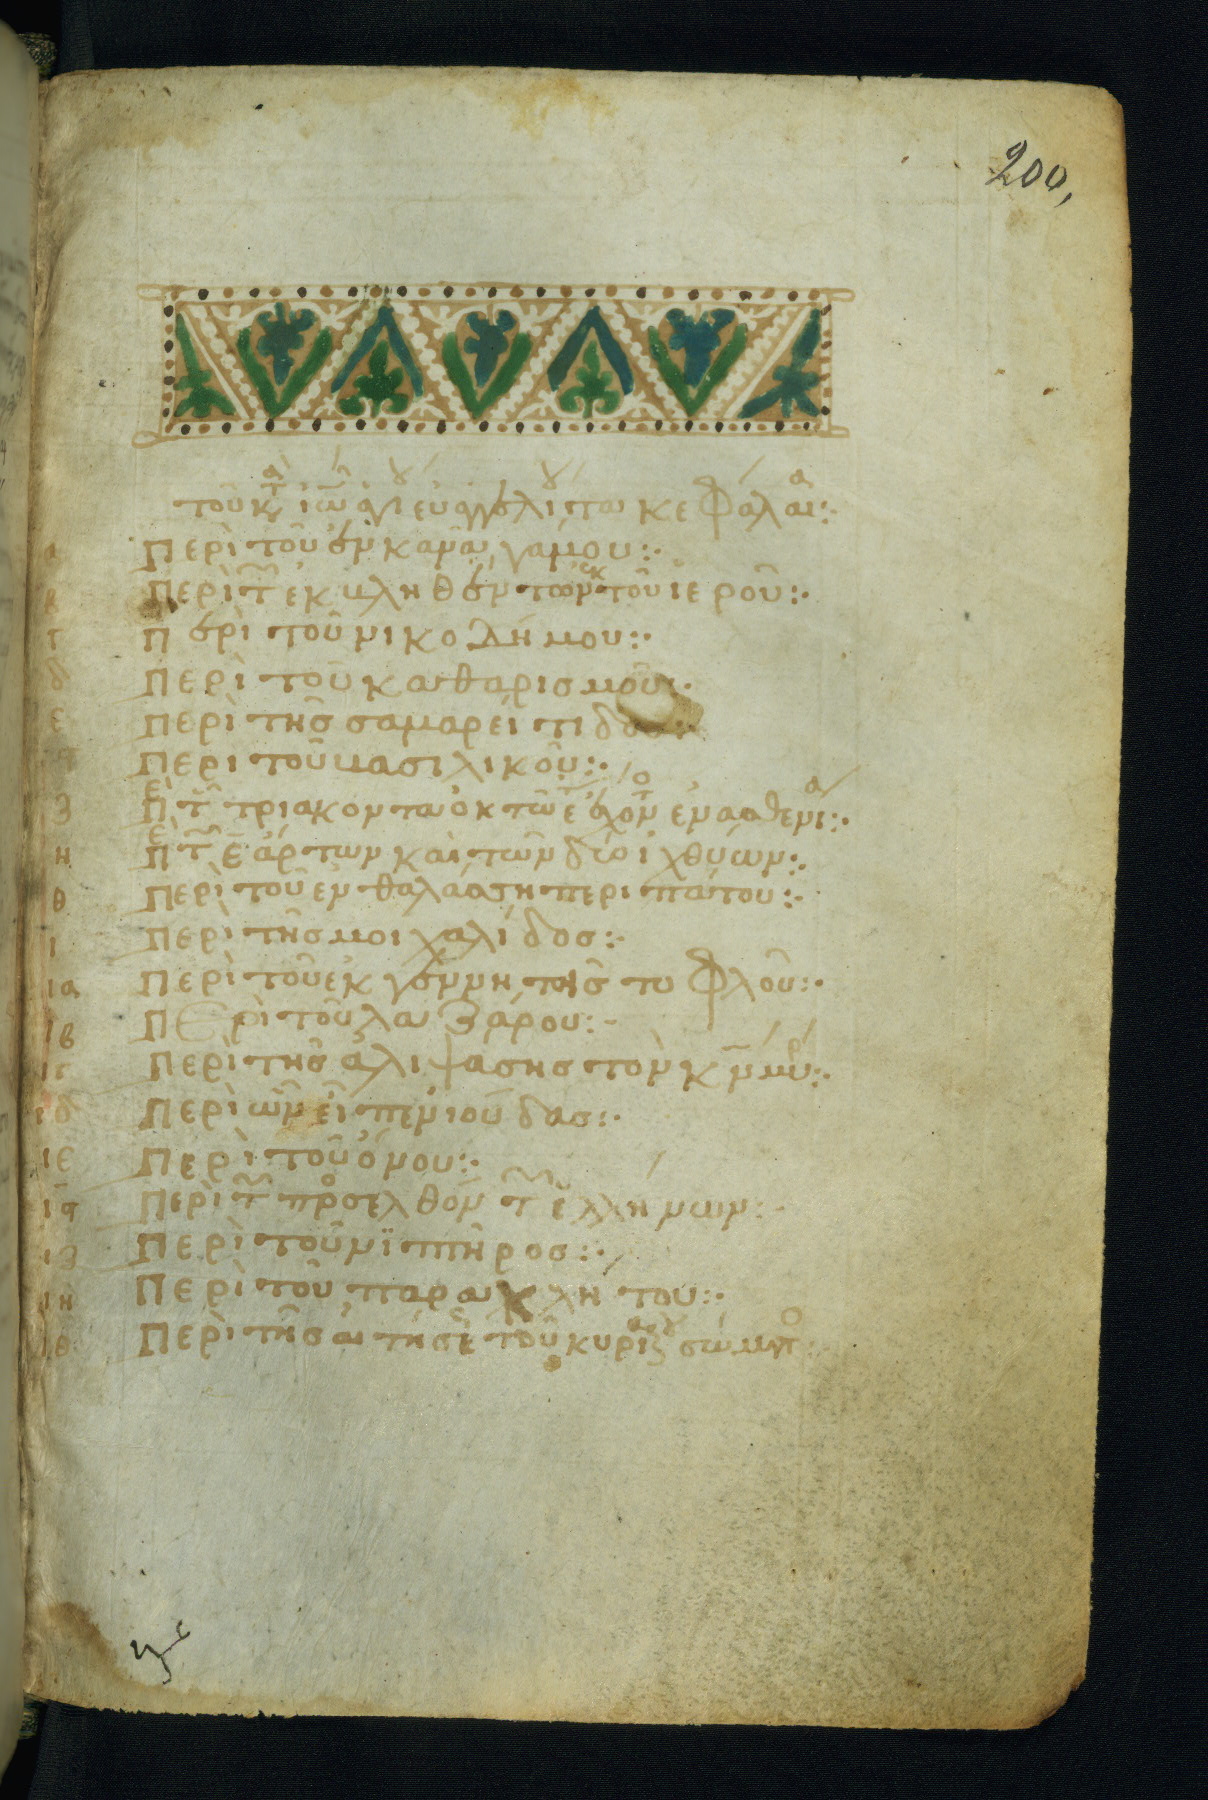 200,
τοῦ κατ ἰω ἁγι εὐαγγελιστ κεφαλαι:
α Περὶ τοῦ ἐν κανᾶ γάμου:
β Περὶ τ ἐκβληθέντων ἐκ τοῦ ἱεροῦ:
γ Περὶ τοῦ νικοδήμου:
δ Περὶ τοῦ καθαρισμοῦ:
ε Περὶ τῆς σαμαρείτιδος:
Περι τοῦ βασιλικοῦ:
ζ Πε τ τριακονταοκτὼ ετ ἔχοντ ἐν ασθενι:
η Πε τ ε ἄρτων καὶ τῶν δύο ἰχθύων:
θ Περὶ τοῦ ἐν θαλάσση περιπάτου:
ι Περὶ τῆς μοιχαλίδος:
ια Περὶ τοῦ ἐκ γεννητῆς τυφλοῦ:
ιβ Περὶ τοῦ λαζάρου:
ιγ Περὶ τῆς ἀλιψάσης τὸν κν μύρ:
ιδ Περὶ ὧν εἶπεν ιούδας:
ιε Περὶ τοῦ ὄνου:
ις Περὶ τ προσελθόν τ ἑλλήνων:
ιζ Περὶ τοῦ νιπτῆρος:
ιη Περὶ τοῦ παρακλήτου:
ιθ Περὶ τῆς αἰτήσε τοῦ κυριακ σώματο: